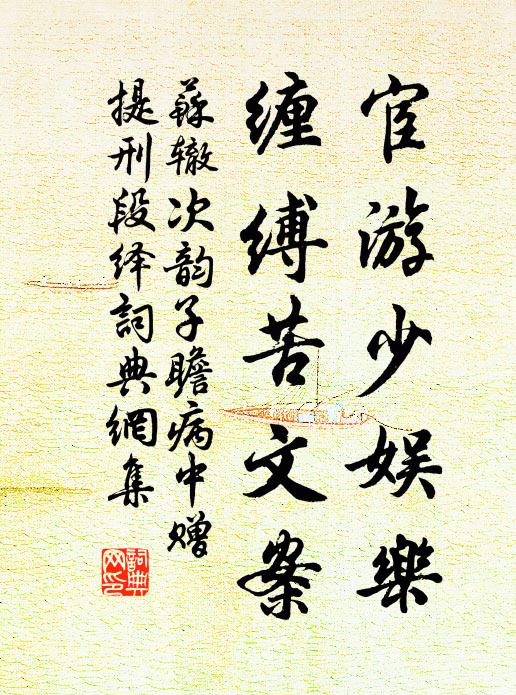 宦游少娱樂
缠缚苦文案
蘇辙次韵子瞻病中赠
提刑段绎詞典網集
詞典
网印